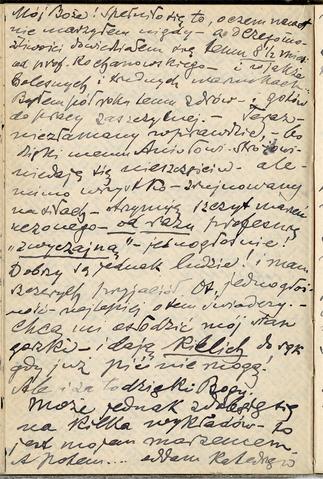 Mój Boże! Spełniło się to, o czem nawet
nie marzyłem nigdy – a o czego mo-
żliwości dowiedziałem się temu 8½ mies.
od prof. Kochanowskiego – i w jakże
bolesnych i trudnych warunkach –
Byłem pół roku temu zdrów – i gotów
do pracy zaszczytnej. – Teraz –
niezłamany wprawdzie, – bo
dzięki memu Aniołowi-Stróżowi
nie dają się nieszczęściom ale –
mimo wszystko – zrujnowany
na siłach – otrzymuję szczyt marzeń
– od razu profesurę
"zwyczajną" – jednogłośnie!
Dobrzy są jednak ludzie! i mam
szczerych przyjaciół. Ot, jednogłoś-
ność najlepiej o tem świadczy. –
Chcą mi osłodzić mój stan
gorzki – i dają Kielich do rąk
gdy już pić nie mogę.
Ale i za to dzięki Bogu.
Może jednak zdobędę się
na kilka wykładów – to
jest mojem marzeniem
A potem... oddam Katedrę